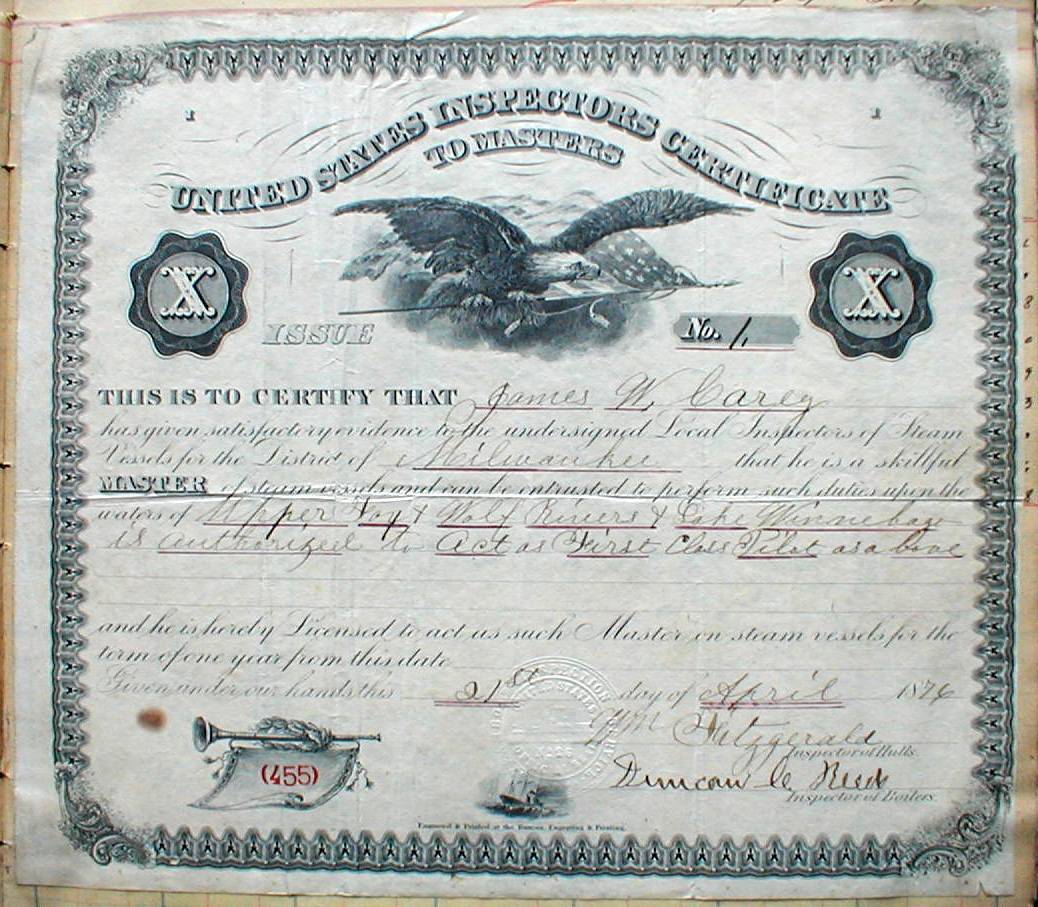 1 1
UNITED STATES INSPECTORS CERTIFICATE
TO MASTERS
X X
ISSUE No. 1.
THIS IS TO CERTIFY THAT James W. Carey
has given satisfactory evidence to the undersigned Local Inspectors of Steam
Vessels for the District of Milwaukee that he is a skillful
MASTER of steam vessels and can be entrusted to perform such duties upon the
waters of Upper Fox & Wolf Rivers & Lake Winnebago
is authorized to act as First Class Pilot as above
and he is hereby Licensed to act as such Master on steam vessels for the
term of one year from this date
Given under our hands this 21st day of April 1876
Wm Fitzgerald
Inspector of Hulls.
Duncan C Reed
Inspector of Boilers.
(455)
Engraved & Printed at the Bureau, Engraving & Printing.